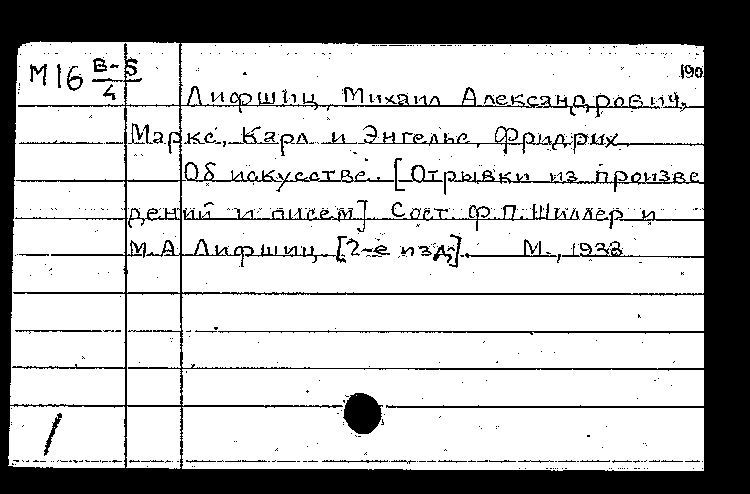 М16 В-5/4
190
Лифшиц, Михаил Александрович,
Маркс, Карл и Энгельс, Фридрих.
Об искусстве. [Отрывки из произве
дений и писем] Сост. Ф.П. Шиллер и
М.А Лифшиц. [2-е изд]. М., 1938